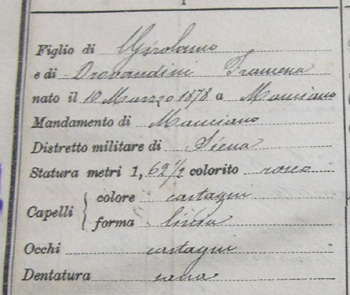 Figlio di Girolamo
e di Drovandini Francesca
nato il 10 Marzo 1878 a Manciano
Mandamento di Manciano
Distretto militare di Siena
Statura metri 1, 62 1/2 colorito rosso
Capelli { colore castagni
forma lisci
Occhi castagni
Dentatura sana